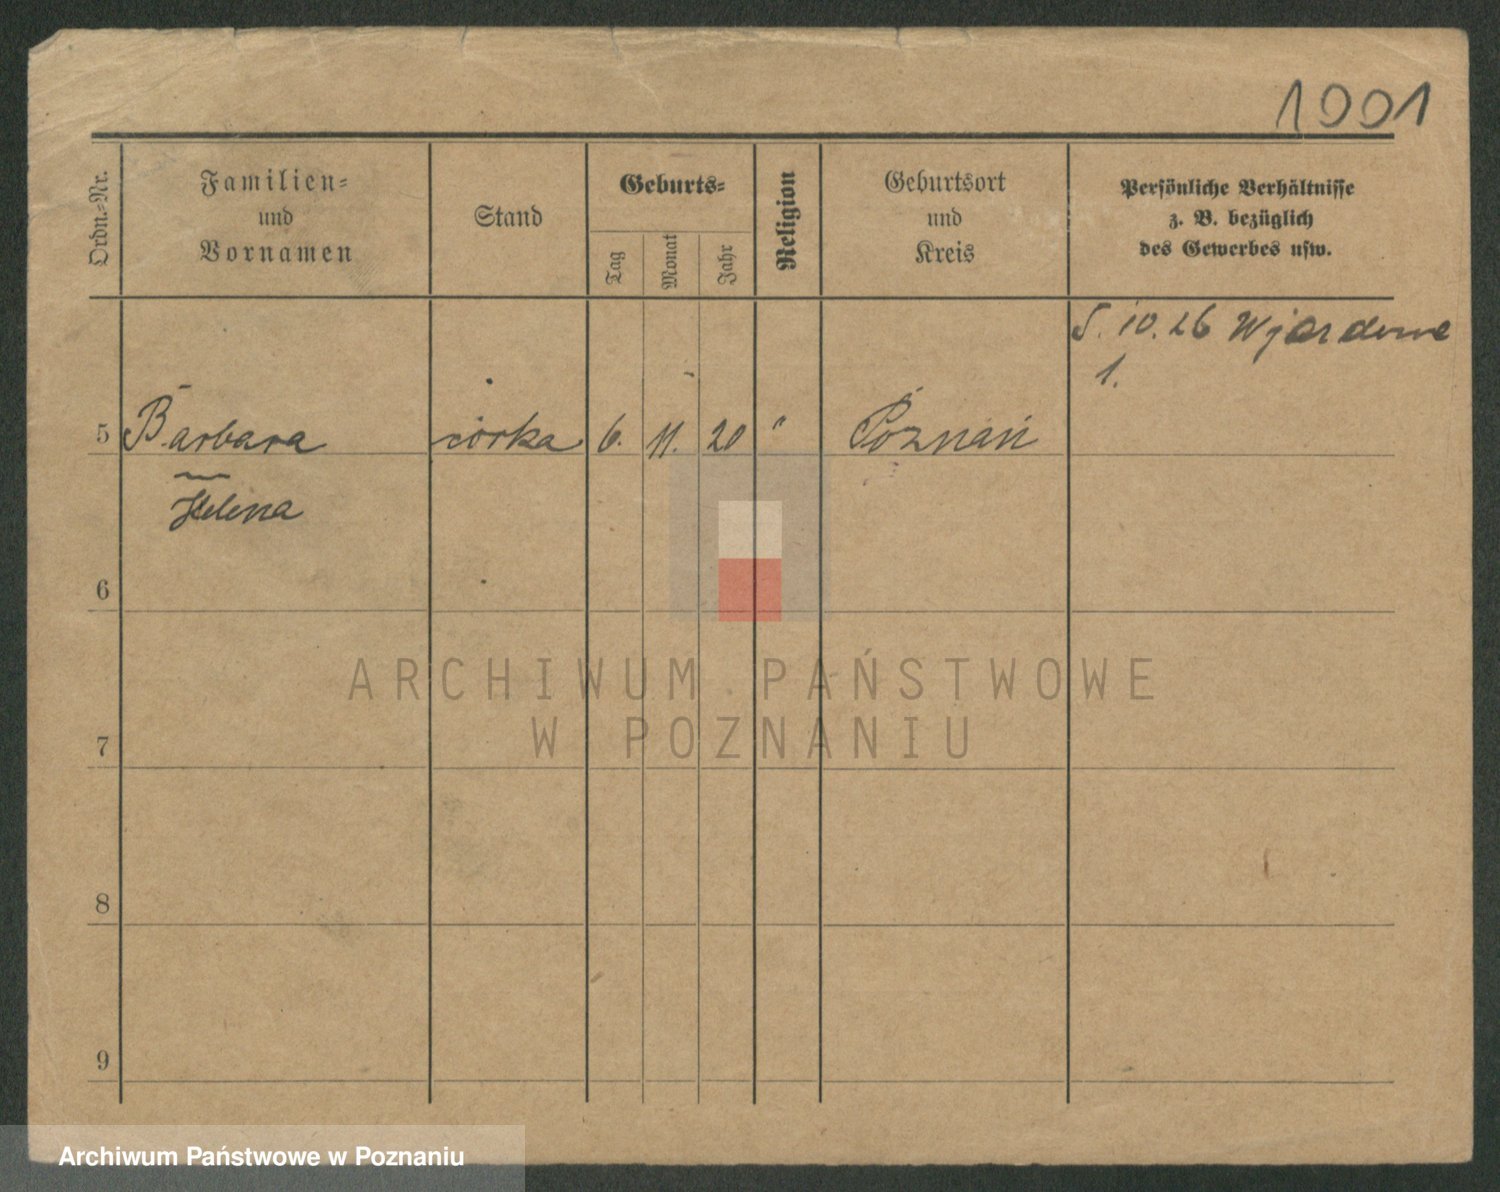 1001
Ordn.-Nr.
Familien-
und
Vornamen
Stand
Geburts-
Tag
Monat
Jahr
Religion
Geburtsort
und
Kreis
Persönliche Verhältnisse
z. B. bezüglich
des Gewerbes usw.
5. 10. 26
1.
5 Barbara córka 6. 11. 20 " Poznań
Helena
6
7
8
9
ARCHIWUM PAŃSTWOWE
W POZNANIU
Archiwum Państwowe w Poznaniu